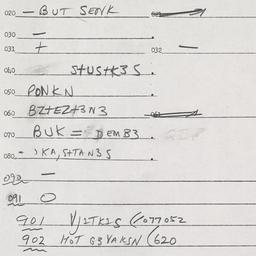 020 — BUT SEDYK
030 —
031 + 032 —
040 S+US+K3S.
050 PONKN
060 BZ+EZ+3N3
070 BUK = DEMB3.
080 - )KA,S+TAN3S.
092 —
091 O
901 VJ2TK2S (1077052
902 HOT G3VAKSN (620